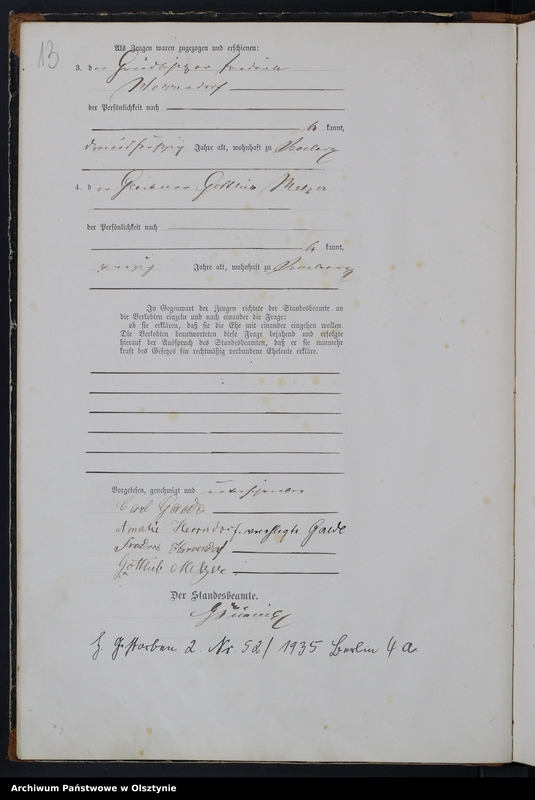 13
Als Zeugen waren zugezogen und erschienen:
3. der Grundbesitzer Friedrich
Herrndorf
der Persönlichkeit nach
kannt,
dreiundfünfzig Jahre alt, wohnhaft zu
4. der Gottlieb Melzer
der Persönlichkeit nach
kannt,
Jahre alt, wohnhaft zu
In Gegenwart der Zeugen richtete der Standesbeamte an
die Verlobten einzeln und nach einander die Frage:
ob sie erklären, daß sie die Ehe mit einander eingehen wollen.
Die Verlobten beantworteten diese Frage bejahend und erfolgte
hierauf der Ausspruch des Standesbeamten, daß er sie nunmehr
kraft des Gesetzes für rechtmäßig verbundene Eheleute erkläre.
Vorgelesen, genehmigt und unterschrieben
Carl Gaede
Amalie Herrndorf verehligte Gaede
Friedrich Herrendorf
Gottlieb Melzer
Der Standesbeamte.
gestorben 2. Nr. 52/1935 Berlin 4a.
Archiwum Państwowe w Olsztynie